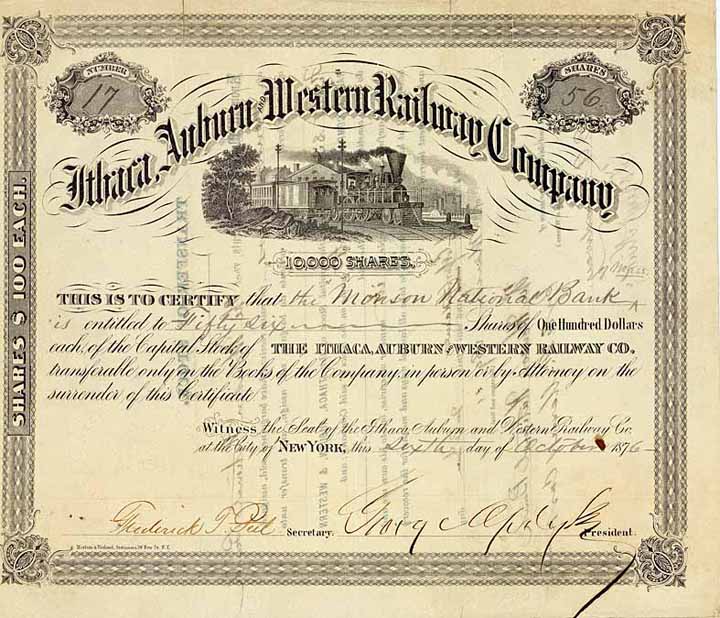 NUMBER
17
SHARES
56
Ithaca, Auburn AND Western Railway Company
10,000 SHARES.
SHARES $ 100 EACH.
THIS IS TO CERTIFY that the Monson National Bank
is entitled to Fifty six Shares of One Hundred Dollars
each, of the Capital Stock of THE ITHACA, AUBURN AND WESTERN RAILWAY CO.
transferable only on the Books of the Company, in person or by Attorney on the
surrender of this Certificate
Witness the Seal of the Ithaca, Auburn and Western Railway Co.
at the City of NEW YORK, this sixth day of October 1876
Frederick T. Secretary. George Opdyke President.